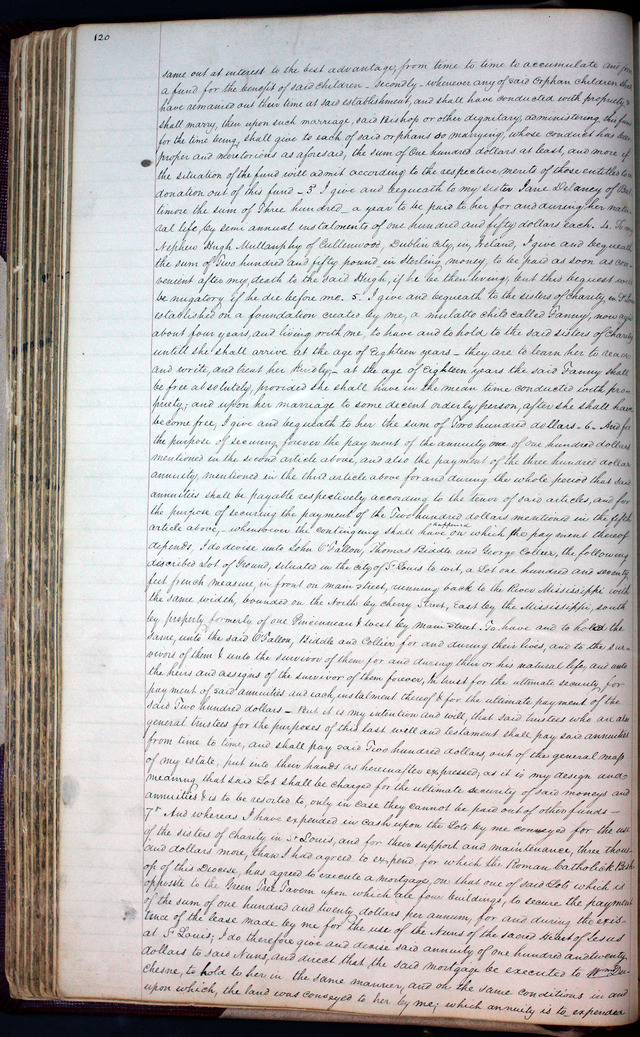 120
same out at interest to the best advantage, from time to time to accumulate and form
a fund for the benefit of said children – Secondly – whenever any of said Orphan children shall
have remained out their time at said establishment, and shall have conducted with propriety, &
shall marry, then upon such marriage, said Bishop or other dignitary, administering this fund
for the time being, shall give to each of said orphans so marrying, whose conduct has been
proper and meretorious as aforesaid, the sum of One hundred dollars at least, and more if
the situation of the fund will admit according to the respective merits of those entitled to a
donation out of this fund – 3d I give and bequeath to my sister Jane Delaney of Bal
timore the sum of Three hundred – a year to be paid to her for and during her natu
ral life, by semi annual instalments of one hundred and fifty dollars each. 4. To my
Nephew Hugh Mullanphy of Cullenwood, Dublin City, in Ireland, I give and bequeath
the sum of Two hundred and fifty pound in Sterling money, to be paid as soon as con
venient after my death to the said Hugh, if he be then living, but this bequest will
be nugatory if he die before me. 5. I give and bequeath to the sisters of Charity, in St Louis
established on a foundation created by me, a mulatto child called Fanny, now aged
about four years, and living with me, to have and to hold to the said sisters of Charity
untill she shall arrive at the age of Eighteen years – they are to learn her to read
and write, and treat her kindly; – at the age of Eighteen years the said Fanny shall
be free absolutely, provided she shall have in the mean time conducted with pro-
priety; and upon her marriage to some decent orderly person, after she shall have
become free, I give and bequeath to her the sum of Two hundred dollars – 6 – And for
the purpose of securing forever the payment of the annuity one of one hundred dollars
mentioned in the second article above, and also the payment of the three hundred dollar
annuity, mentioned in the third article above for and during the whole period that said
annuities shall be payable respectively according to the tenor of said articles, and for
the purpose of securing the payment of the Two hundred dollars mentioned in the fifth
article above, – whensoever the contingency shall have happened on which the payment thereof
depends, I do devise unto John O'Fallon, Thomas Biddle and George Collier, the following
described Lot of Ground, situated in the City of St Louis to wit, a Lot one hundred and seventy
feet french measure, in front on main street, running back to the River Mississippi with
the same width, bounded on the North by cherry Street, East by the Mississippi, south
by property formerly of one & west by main street. To have and to hold the
same, unto the said O'Fallon, Biddle and Collier for and during their lives, and to the sur-
vivors of them & unto the survivor of them for and during their or his natural life, and unto
the heirs and assigns of the survivor of them forever, In trust for the ultimate security, for
payment of said annuities and each instalment thereof & for the ultimate payment of the
said Two hundred dollars – But it is my intention and will, that said trustees who are also
general trustees for the purposes of this last will and testament shall pay said annuities
from time to time, and shall pay said Two hundred dollars, out of the general mass
of my estate, put into their hands as hereinafter expressed; as it is my design and
meaning that said Lot shall be charged for the ultimate security of said moneys and
annuities & is to be resorted to, only in case they cannot be paid out of other funds –
7th And whereas I have expended in cash upon the Lots by me conveyed for the use
of the sisters of charity in St Louis, and for their support and maintenance, three thous-
and dollars more, than I had agreed to expend, for which the Roman Catholick Bish
op of this Diocese, has agreed to execute a mortgage, on that one of said Lots which is
opposite to the Green Tree Tavern upon which are four buildings, to secure the payment
of the sum of one hundred and twenty dollars per annum, for and during the exis-
tence of the lease made by me for the use of the Nuns of the Sacred Heart of Jesus
at St Louis; I do therefore give and devise said annuity of one hundred and twenty
dollars to said Nuns, and direct that the said mortgage be executed to Du-
chesne, to hold to her in the same manner, and on the same conditions in and
upon which, the land was conveyed to her by me; which annuity is to expended